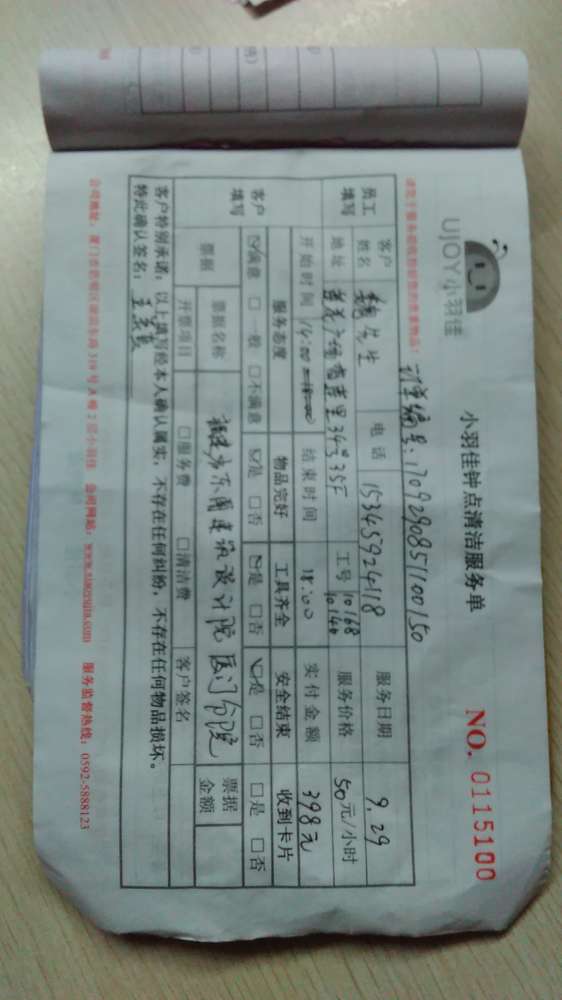 UJOY小羽佳
小羽佳钟点清洁服务单
NO. 0115100
订单编号:1709290851100150
员工填写
客户姓名 魏先生 电话 15345924118 服务日期 9.29
地址 工号 10168 10140 服务价格 50元/小时
开始时间 14:00 结束时间 18:00 实付金额 398元
客户填写
服务态度 物品完好 工具齐全 安全结束 收到卡片
☑满意 □一般 □不满意 ☑是 □否 ☑是 □否 ☑是 □否 □是 □否
票据 票据名称 福建东国建筑设计院厦门分院 票据金额
开票项目 □服务费 □清洁费 客户签名
客户特别承诺:以上填写经本人确认属实,不存在任何纠纷,不存在任何物品损坏。
特此确认签名:
公司网站:www.xiaoyujia.com 服务监督热线:0592-5888123